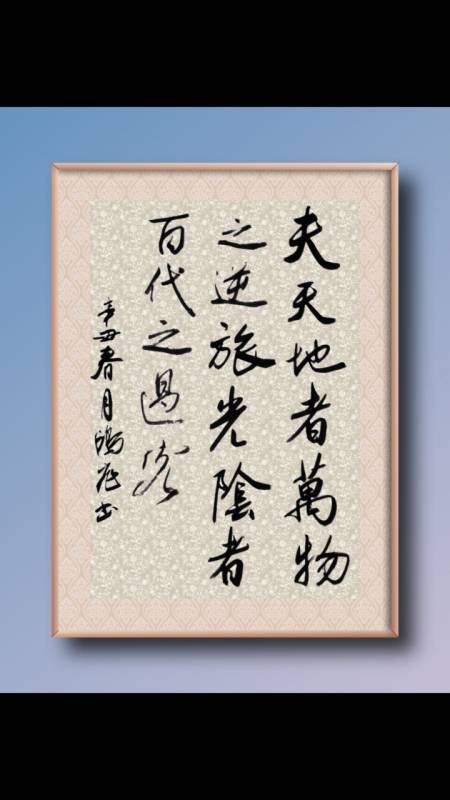 夫天地者萬物
之逆旅光陰者
百代之過客
辛丑春月鴻啓书